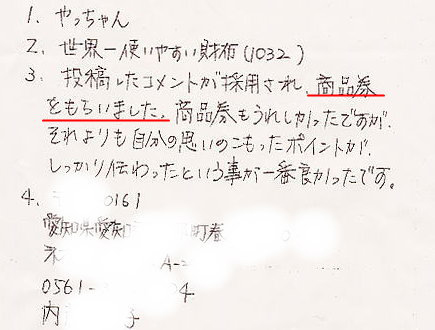 1. やっちゃん
2. 世界一使いやすい財布(1032)
3. 投稿したコメントが採用され、商品券
をもらいました。商品券もうれしかったですが、
それよりも自分の思いのこもったポイントが、
しっかり伝わったという事が一番良かったです。
4. 0161
愛知県愛知 町巻
A-
0561- 04
内 子